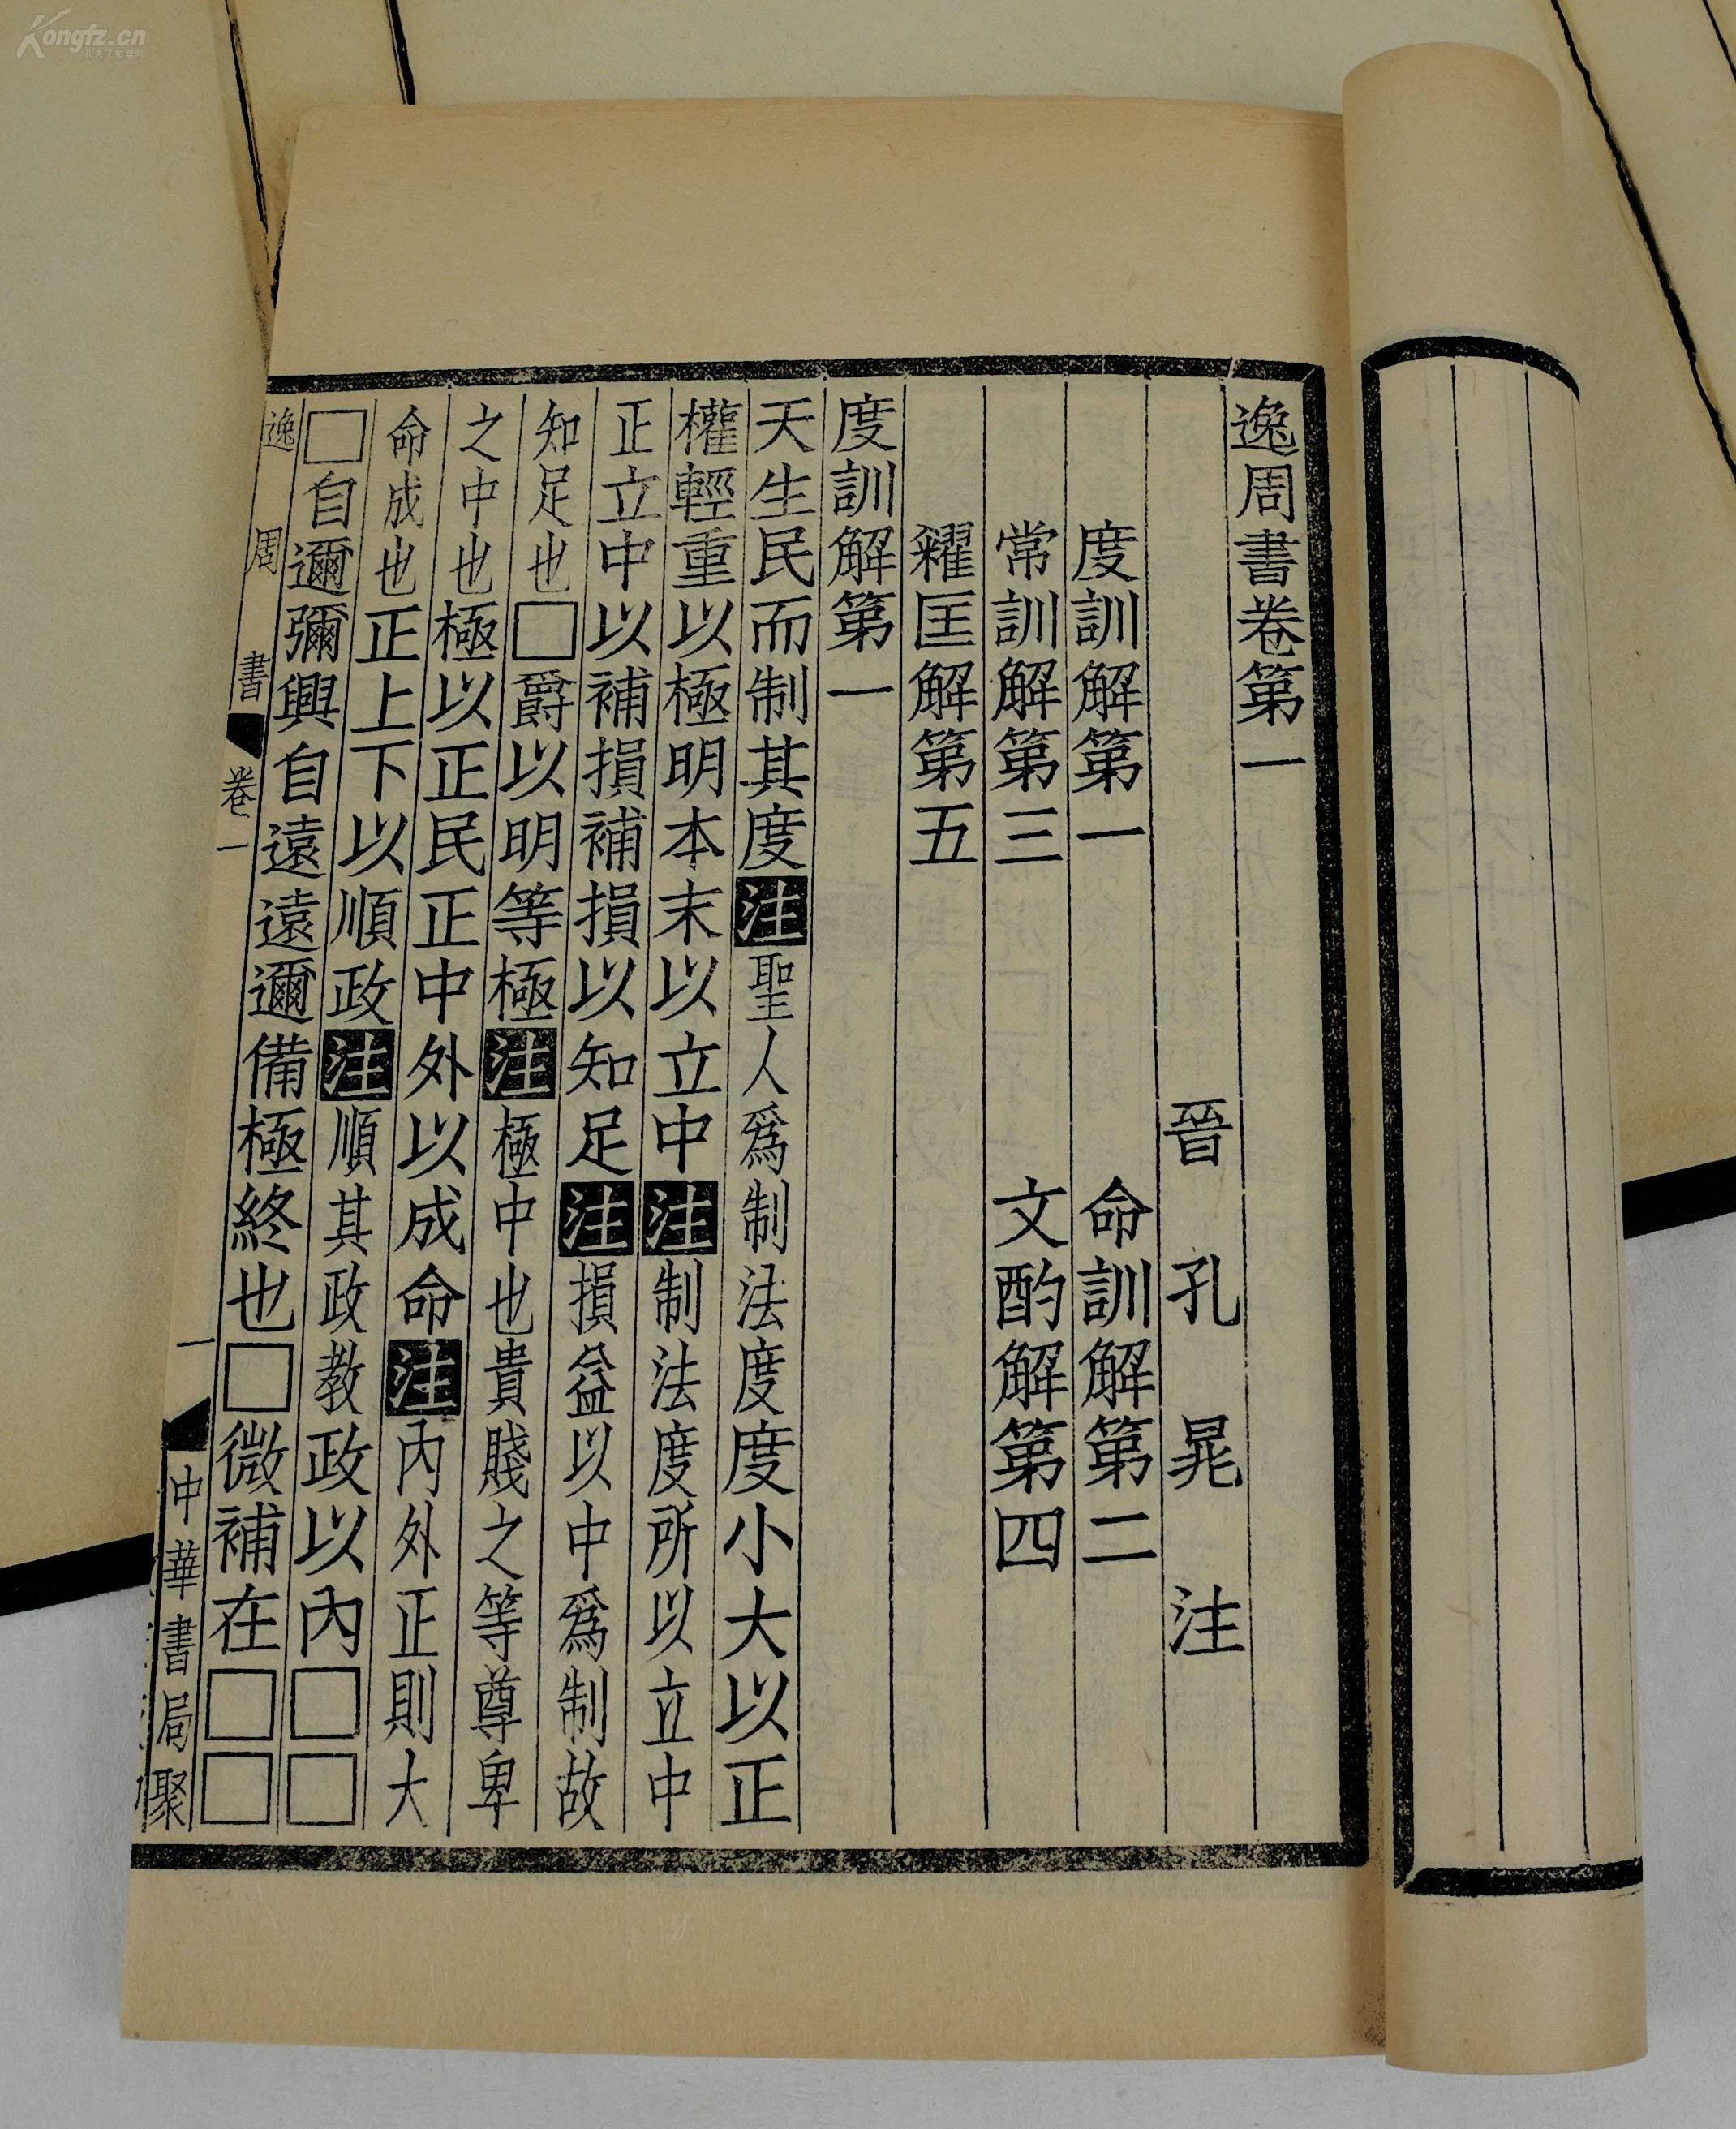 逸周書卷第一
晉 孔 晁 注
度訓解第一 命訓解第二
常訓解第三 文酌解第四
糴匡解第五
度訓解第一
天生民而制其度注聖人爲制法度度小大以正
權輕重以極明本末以立中注制法度所以立中
正立中以補損補損以知足注損益以中爲制故
知足也□爵以明等極注極中也貴賤之等尊卑
之中也極以正民正中外以成命注內外正則大
命成也正上下以順政注順其政教政以內□□
□自邇彌興自遠遠邇備極終也□微補在□□
逸周書 卷一 一 中華書局聚
Kongfz.cn
孔夫子拍卖网